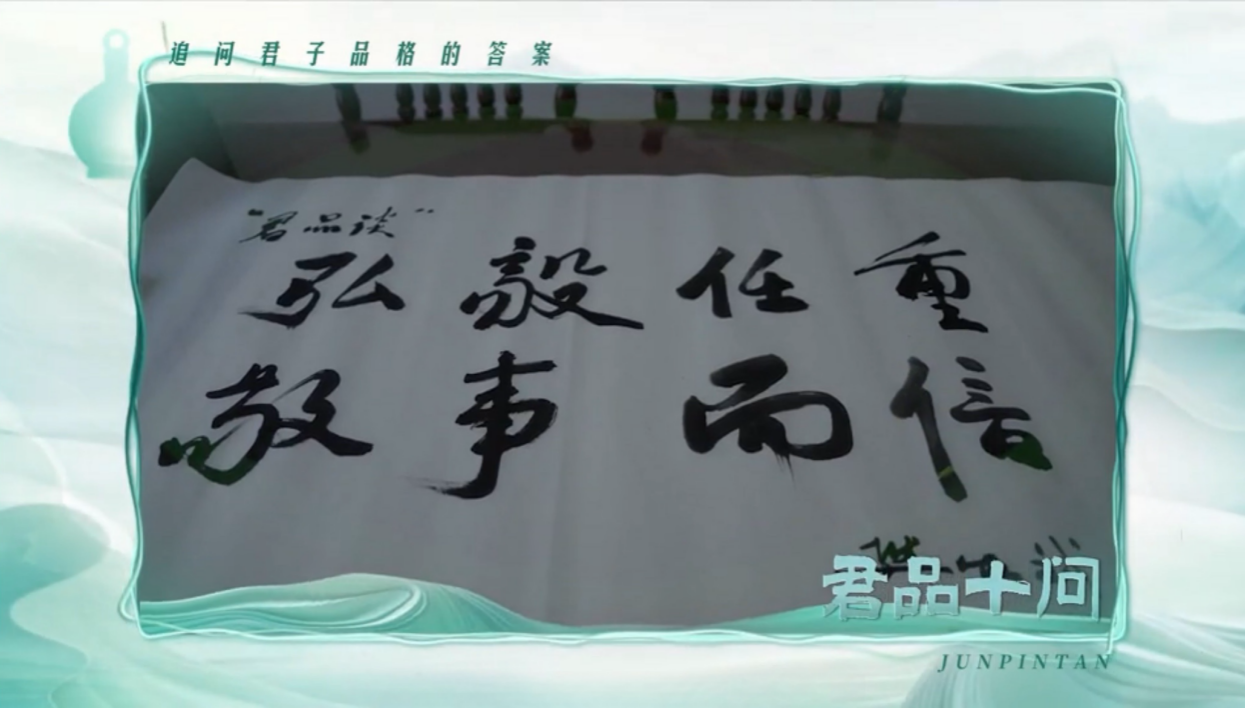 追问君子品格的答案
"君品谈"
弘毅任重
敬事而信
君品十问
JUNPINTAN